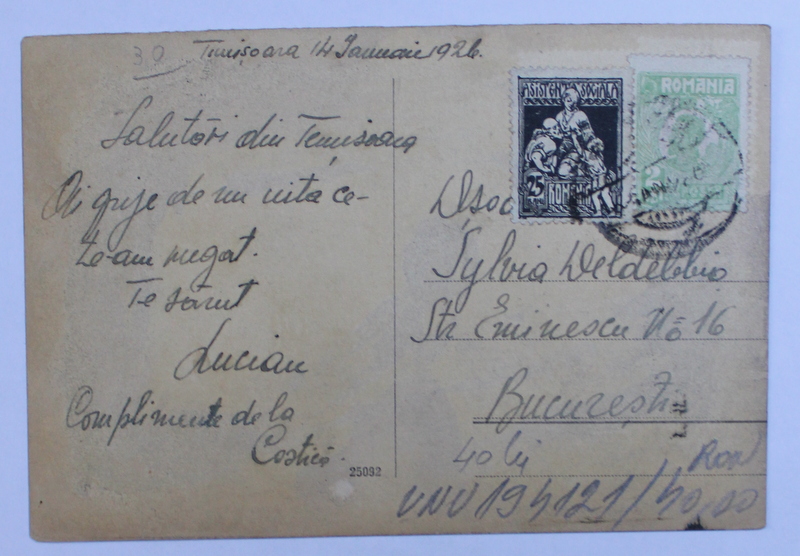 30
Timișoara 14 Ianuarie 1926.
Salutări din Temisoara
Ai grije de nu uita ce-
te-am rugat.
Te sărut
Lucian
Complimente de la
Costică
25092
ASISTENȚA SOCIALA
25
ROMANIA
ROMANIA
2
Sylvia Deldebbio
Str Eminescu No 16
București
40 lei
RON
UNU194121/40,00